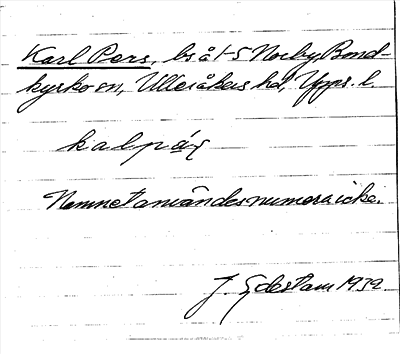 Karl Pers, bs å 1-5 Norby, Bond-
kyrko sn, Ulleråkers hd, Upps. l.
kalpäs
Namnet användes numera icke.
J. Edestam 1932